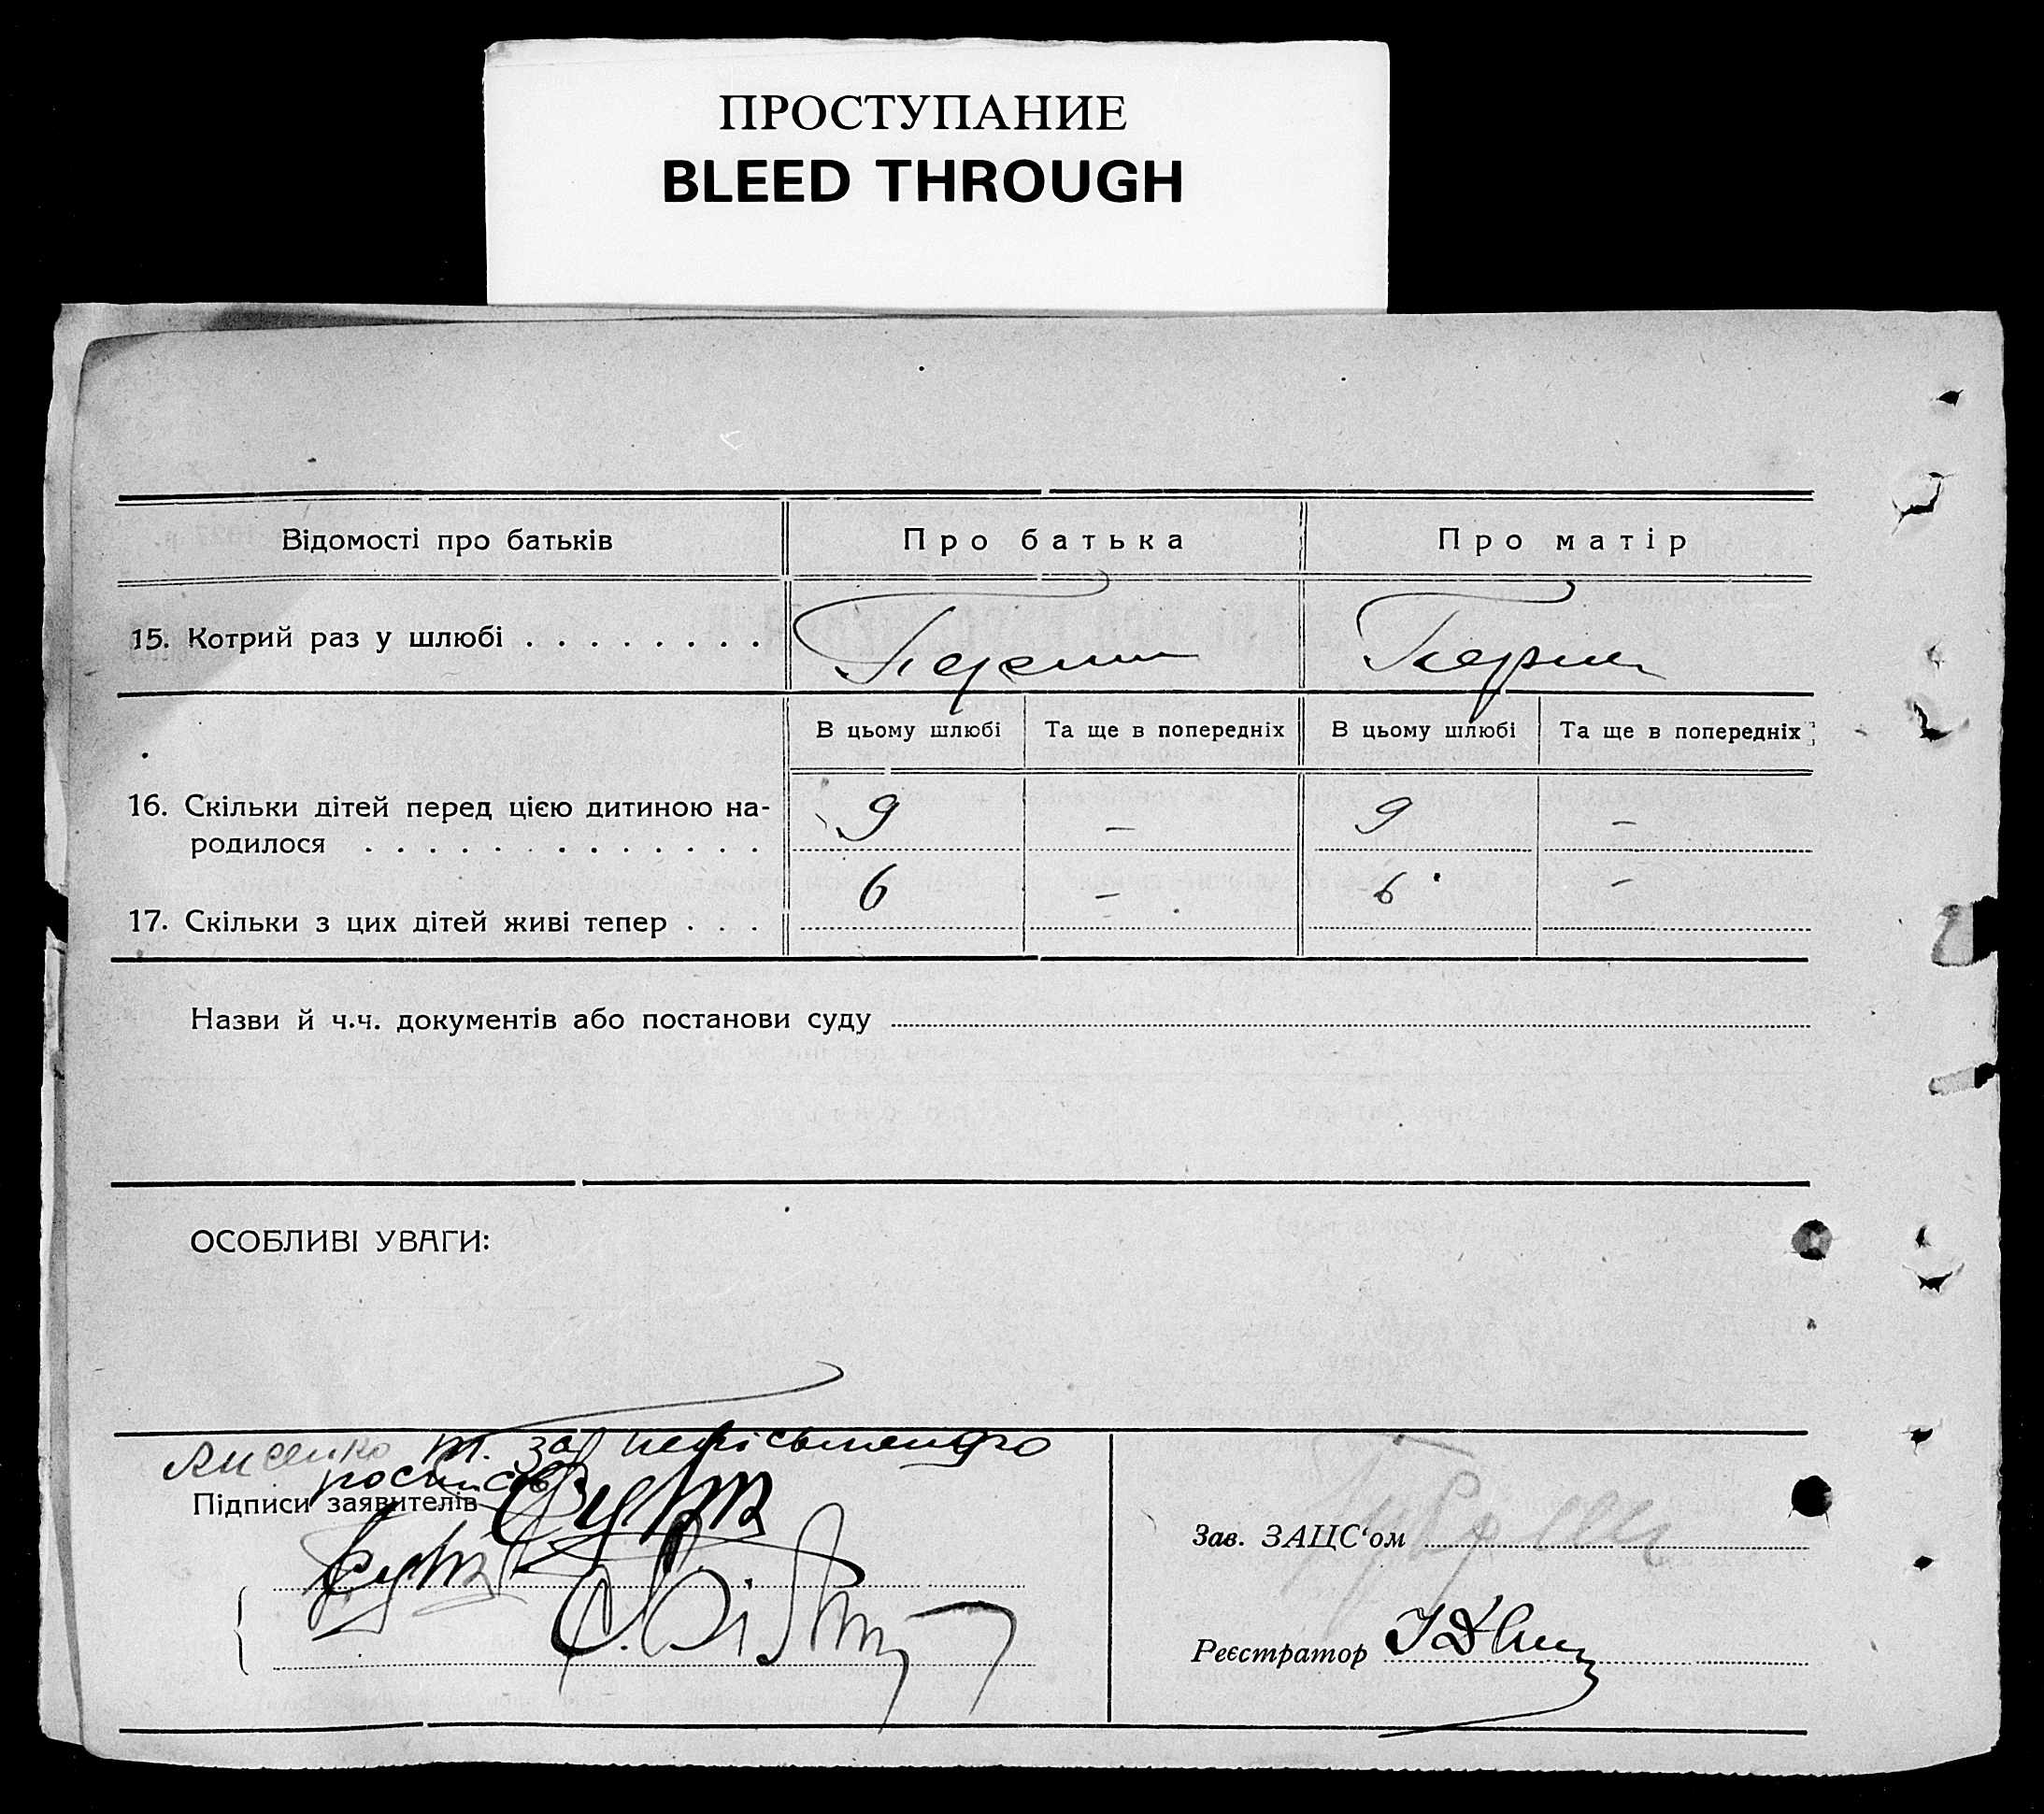 ПРОСТУПАНИЕ
BLEED THROUGH
Відомості про батьків Про батька Про матір
15. Котрий раз у шлюбі . . . . . . . .
В цьому шлюбі Та ще в попередніх В цьому шлюбі Та ще в попередніх
16. Скільки дітей перед цією дитиною на- 9 – 9 –
родилося . . . . . . . . . . . . .
17. Скільки з цих дітей живі тепер . . . 6 – 6 –
Назви й ч.ч. документів або постанови суду
ОСОБЛИВІ УВАГИ:
Лисенко за
Підписи заявителів
Зав. ЗАЦС‘ом
Реєстратор